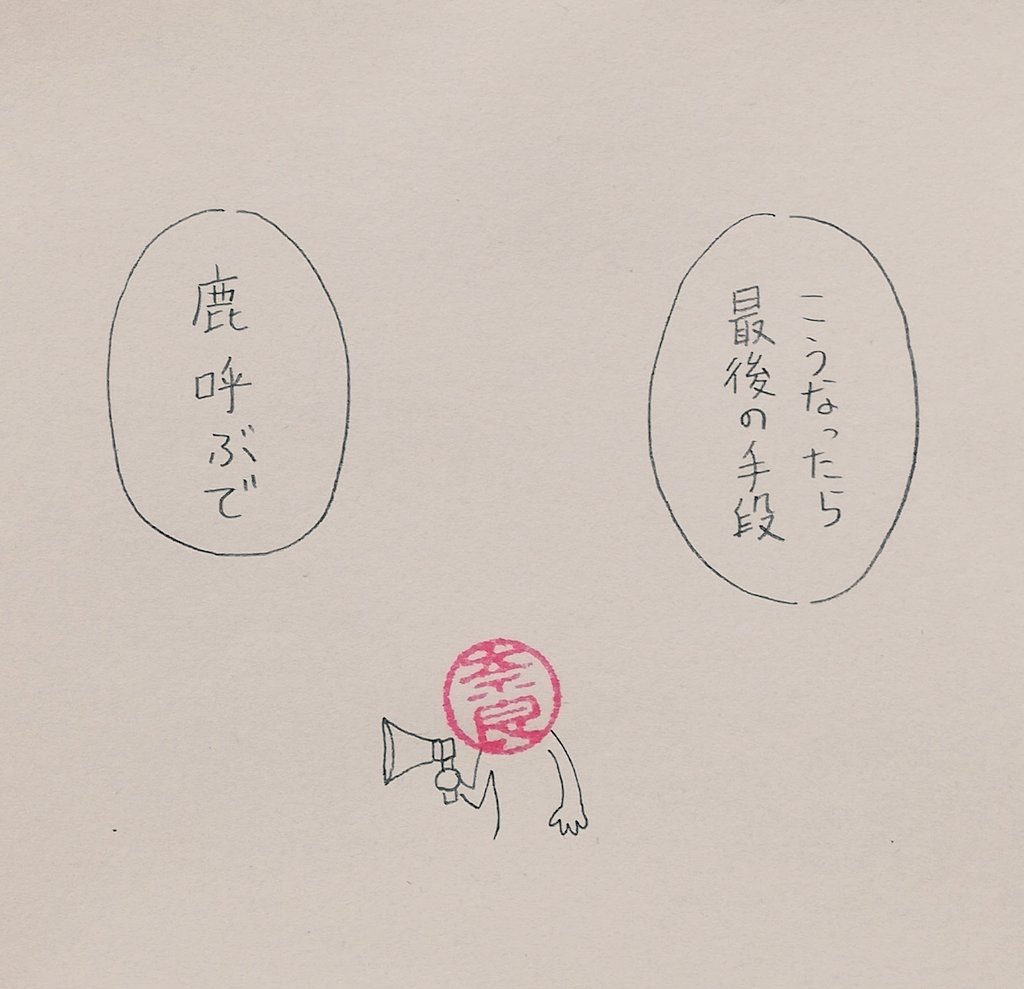 こうなったら
最後の手段
鹿呼ぶで
奈良